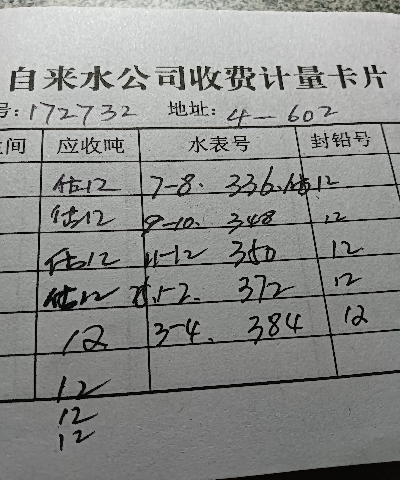 自来水公司收费计量卡片
号:172732 地址: 4-602
间 应收吨 水表号 封铅号
估12 7-8. 336. 12
估12 9-10. 348 12
估12 11-12 360 12
估12 1-2. 372 12
12 3-4. 384 12
12
12
12